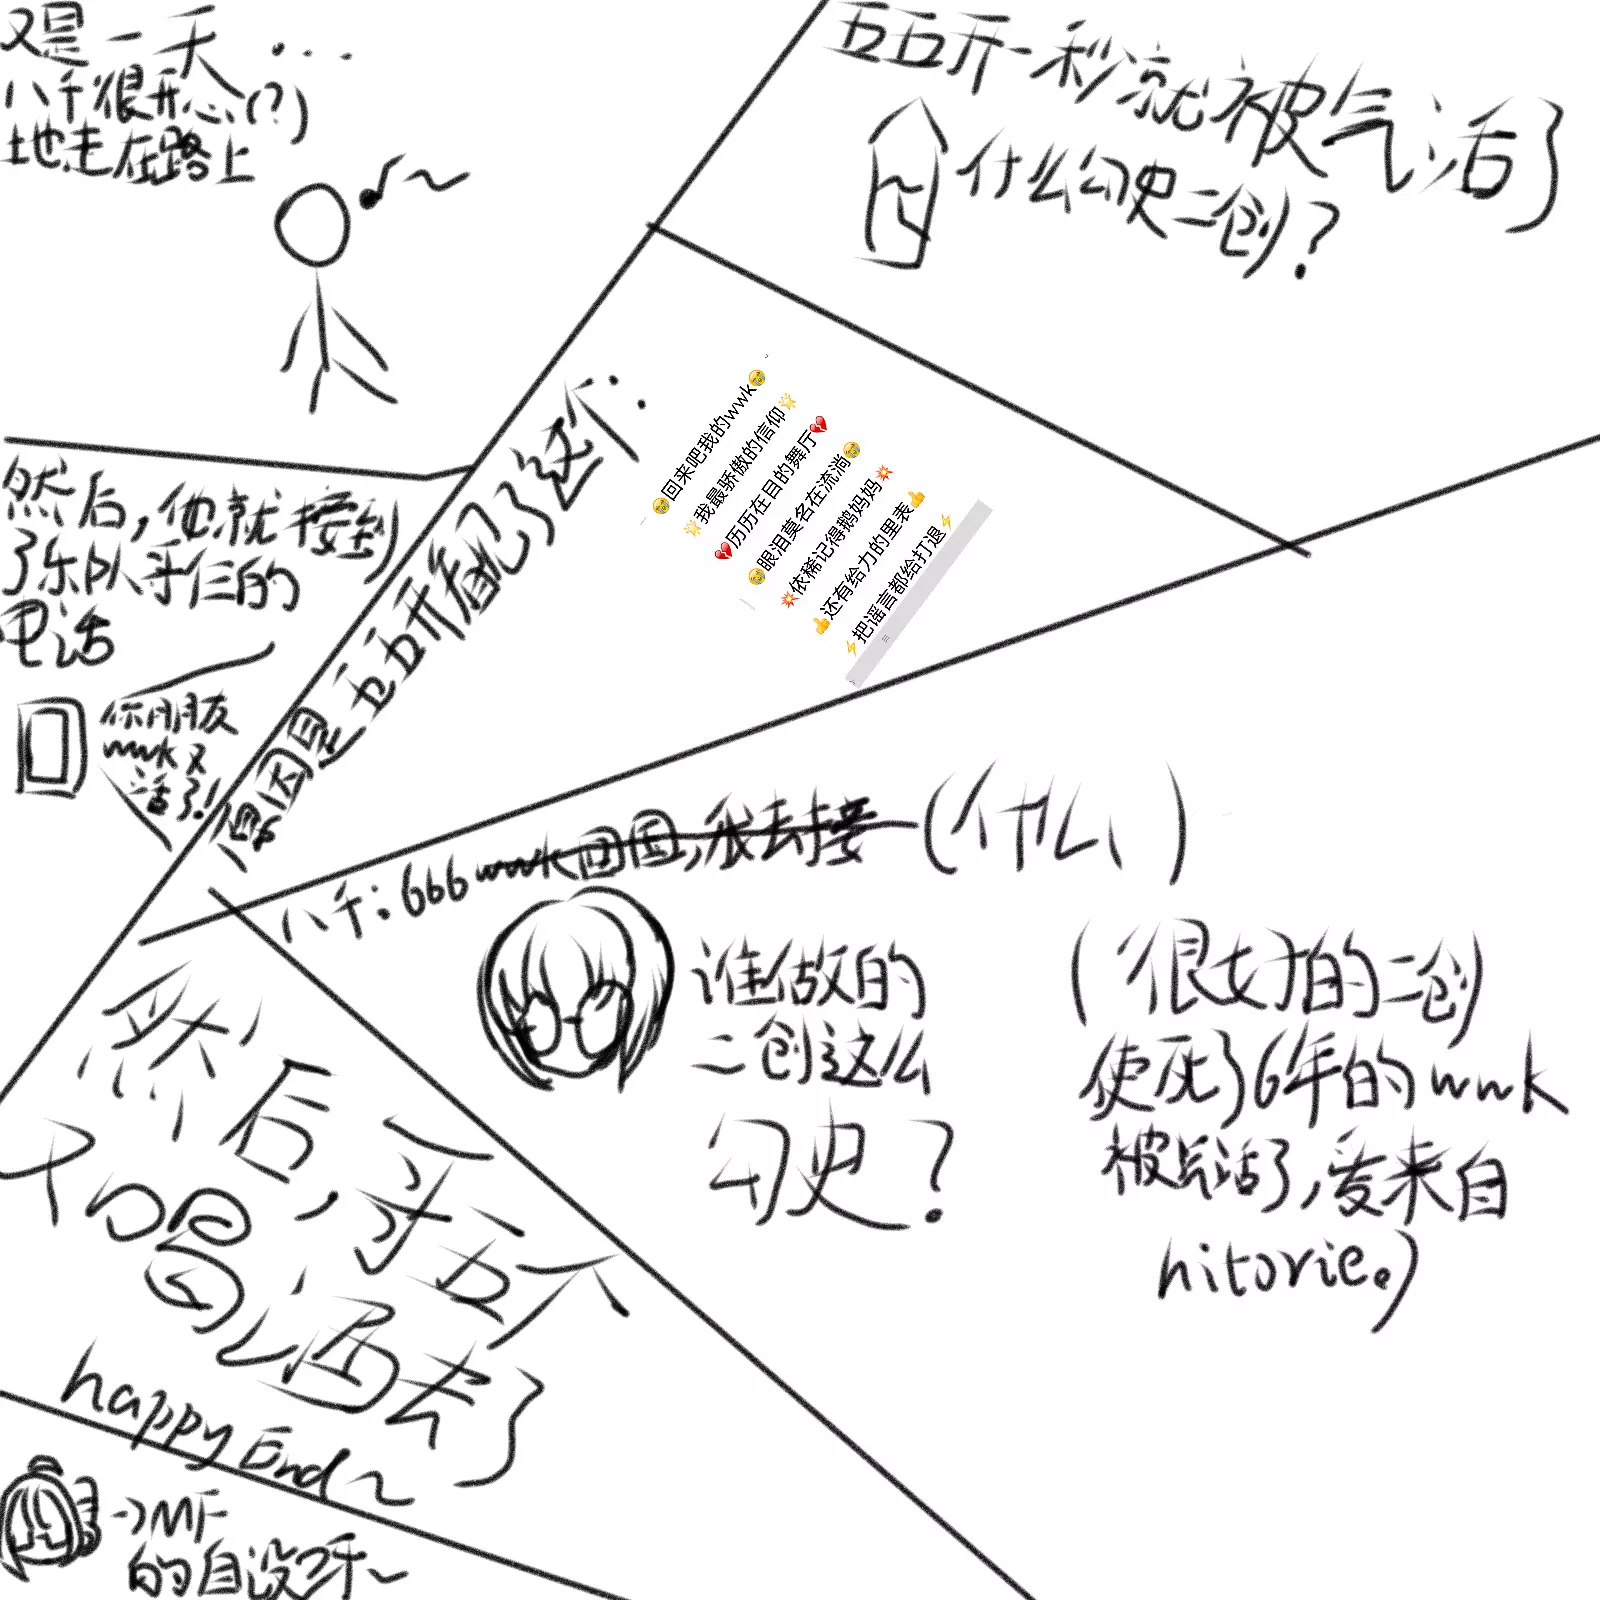 又是一天……
八千很开心(?)
地走在路上
然后,他就接到
了乐队手仨的
电话
你朋友
wwk又
活了!
原因是五五开看见了这个:
😭回来吧我的wwk😭
🌟我最骄傲的信仰🌟
💔历历在目的舞厅💔
😭眼泪莫名在流淌😭
💥依稀记得鹅妈妈💥
👍还有给力的里表👍
⚡把谣言都给打退⚡
五五开一秒就被气活了
什么勾史二创?
八千:666wwk回国,我去接(什么)
谁做的
二创这么
勾史?
(很好的二创
使死了6年的wwk
被气活了,爱来自
hitorie。)
然后,于五个
人喝酒去了
happy End~
→MF
的自设yeah~